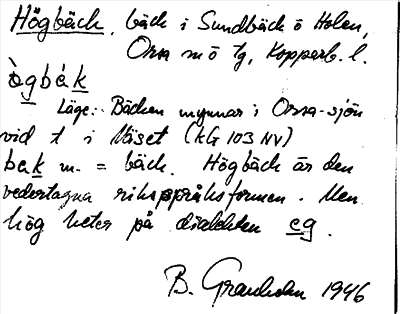 Högbäck, bäck i Sundbäck ö Holen,
Orsa sn ö tg, Kopparb. l.
ògbàk
Läge: Bäcken mynnar i Orsa-sjön
vid t i Näset (KG 103 NV)
bak m. = bäck. Högbäck är den
vedertagna riksspråksformen. Men
hög heter på dialekten eg.
B. Granholm 1946